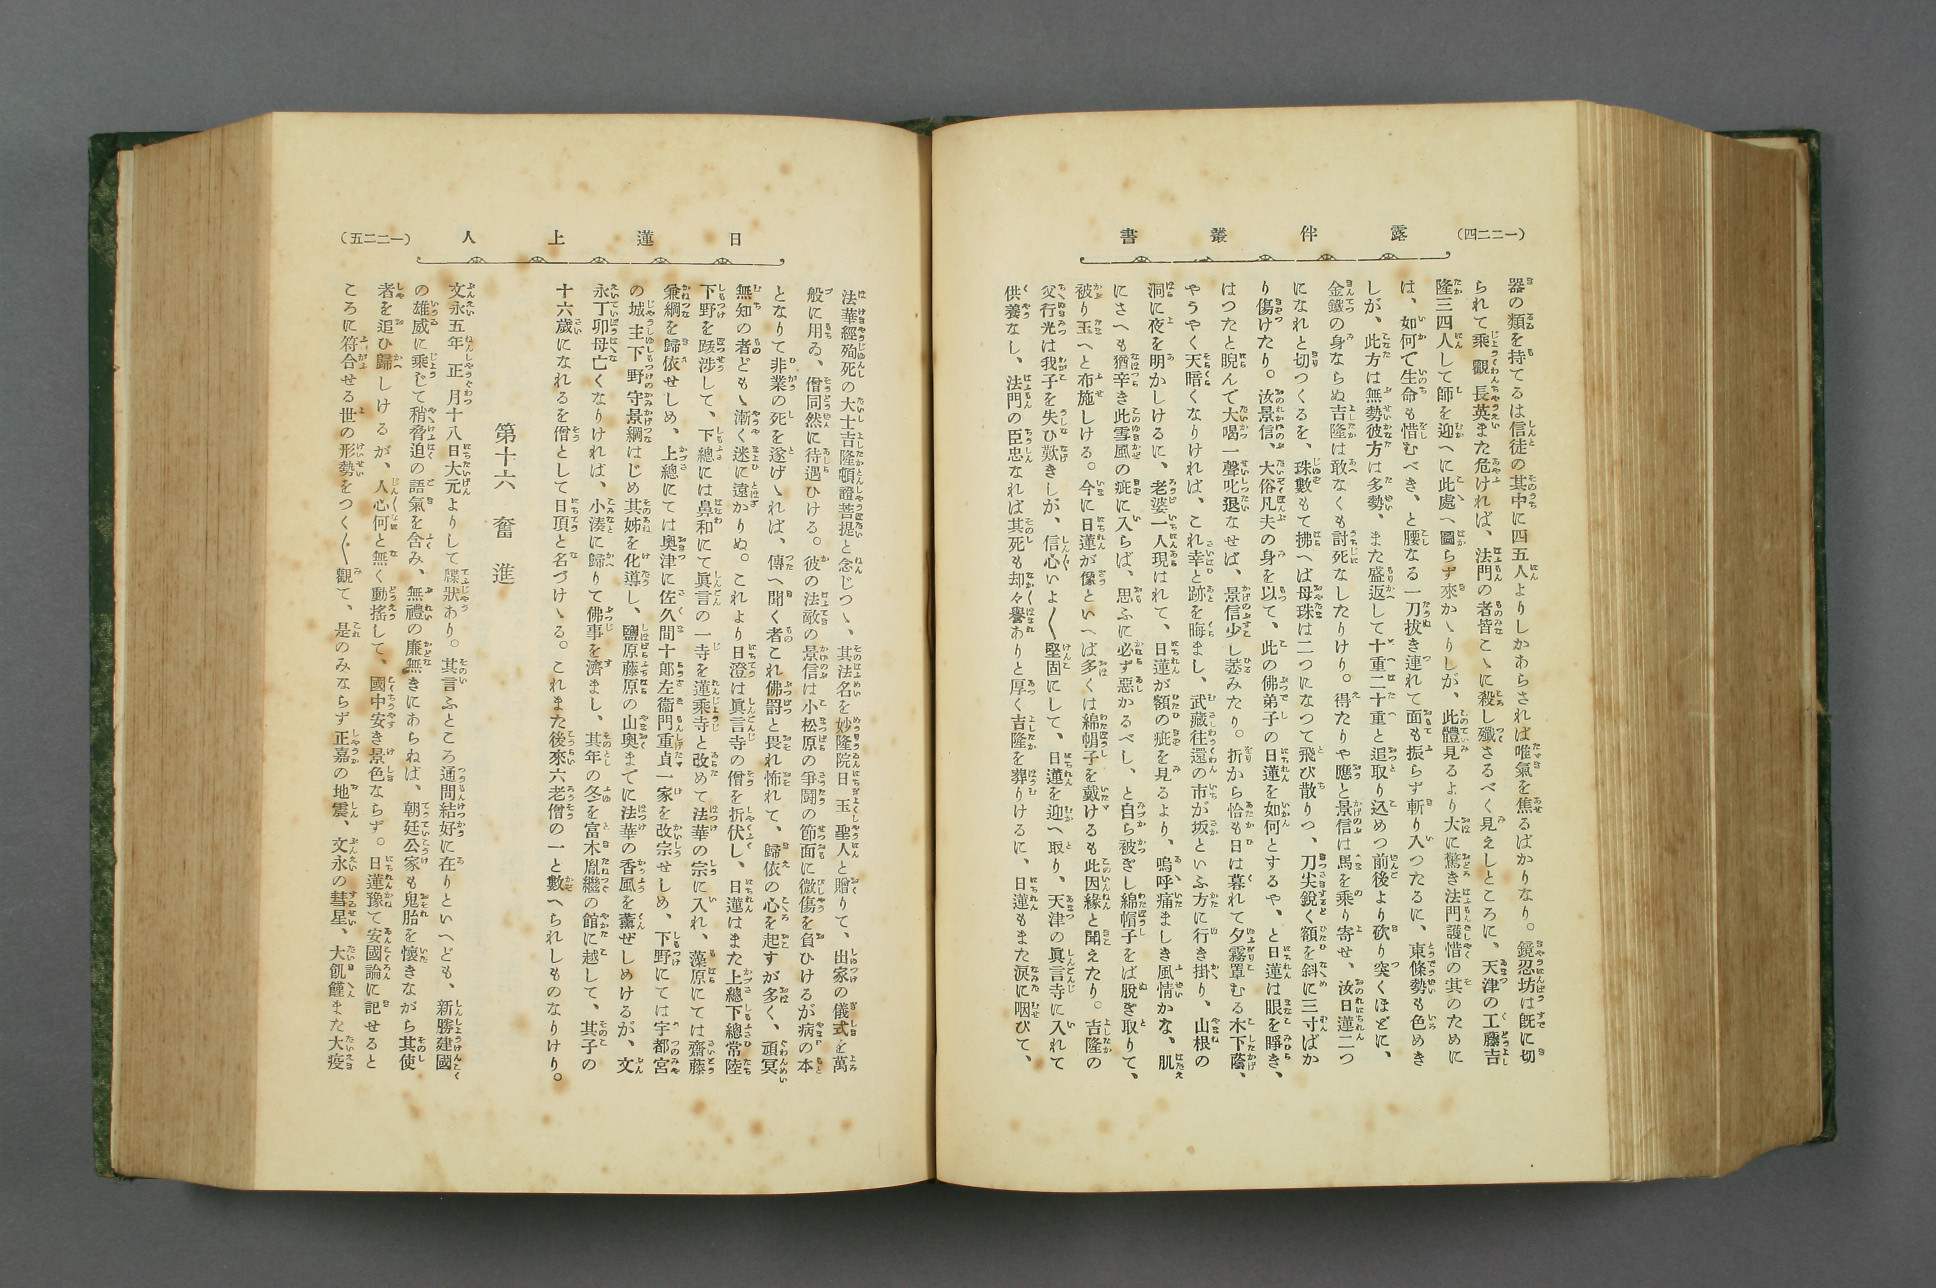 (一二二四)
露伴叢書
器の類を持てるは信徒の其中に四五人よりしかあらされば唯氣を焦るばかりなり。鏡忍坊は旣に切
られて乘觀長英また危ければ、法門の者皆こゝに殺し殲さるべく見えしところに、天津の工藤吉
隆三四人して師を迎へに此處へ圖らず來かゝりしが、此體見るより大に驚き法門護惜の其のために
は、如何で生命も惜むべき、と腰なる一刀拔き連れて面も振らず斬り入つたるに、東條勢も色めき
しが、此方は無勢彼方は多勢、また盛返して十重二十重と追取り込めつ前後より砍り突くほどに、
金鐵の身ならぬ吉隆は敢なくも討死なしたりけり。得たりや應と景信は馬を乘り寄せ、汝日蓮二つ
になれと切つくるを、珠數もて拂へば母珠は二つになつて飛び散りつ、刀尖銳く額を斜に三寸ばか
り傷けたり。汝景信、大俗凡夫の身を以て、此の佛弟子の日蓮を如何とするや、と日蓮は眼を睜き、
はつたと睨んで大喝一聲叱退なせば、景信少し恧みたり。折から恰も日は暮れて夕霧罩むる木下蔭、
やうやく天暗くなりければ、これ幸と跡を晦まし、武藏往還の市が坂といふ方に行き掛り、山根の
洞に夜を明かしけるに、老婆一人現はれて、日蓮が額の疵を見るより、嗚呼痛ましき風情かな、肌
にさへも猶辛き此雪風の疵に入らば、思ふに必ず惡かるべし、と自ら被ぎし綿帽子をば脫ぎ取りて、
被り玉へと布施しける。今に日蓮が像といへば多くは綿帽子を戴けるも此因緣と聞えたり。吉隆の
父行光は我子を失ひ歎きしが、信心いよ〱堅固にして、日蓮を迎へ取り、天津の眞言寺に入れて
供養なし、法門の臣忠なれば其死も却々譽ありと厚く吉隆を葬りけるに、日蓮もまた淚に咽びて、
日蓮上人
(一二二五)
法華經殉死の大士吉隆頓證菩提と念じつゝ、其法名を妙隆院日玉聖人と贈りて、出家の儀式を萬
般に用ゐ、僧同然に待遇ひける。彼の法敵の景信は小松原の爭鬪の節面に微傷を負ひけるが病の本
となりて非業の死を遂げゝれば、傳へ聞く者これ佛罰と畏れ怖れて、歸依の心を起すが多く、頑冥
無知の者ども漸く迷に遠かりぬ。これより日澄は眞言寺の僧を折伏し、日蓮はまた上總下總常陸
下野を跋涉して、下總には鼻和にて眞言の一寺を蓮乘寺と改めて法華の宗に入れ、藻原にては齋藤
兼綱を歸依せしめ、上總にては奧津に佐久間十郎左衞門重貞一家を改宗せしめ、下野にては宇都宮
の城主下野守景綱はじめ其姊を化導し、鹽原藤原の山奧までに法華の香風を薰ぜしめけるが、文
永丁卯母亡くなりければ、小湊に歸りて佛事を濟まし、其年の冬を富木胤繼の館に越して、其子の
十六歲になれるを僧として日頂と名づけゝる。これまた後來六老僧の一と數へられしものなりけり。
第十六 奮進
文永五年正月十八日大元よりして牒狀あり。其言ふところ通問結好に在りといへども、新勝建國
の雄威に乘じて稍脅迫の語氣を含み、無禮の廉無きにあらねば、朝廷公家も鬼胎を懷きながら其使
者を追ひ歸しけるが、人心何と無く動搖して、國中安き景色ならず。日蓮豫て安國論に記せると
ころに符合せる世の形勢をつく〲觀て、是のみならず正嘉の地震、文永の彗星、大飢饉また大疫